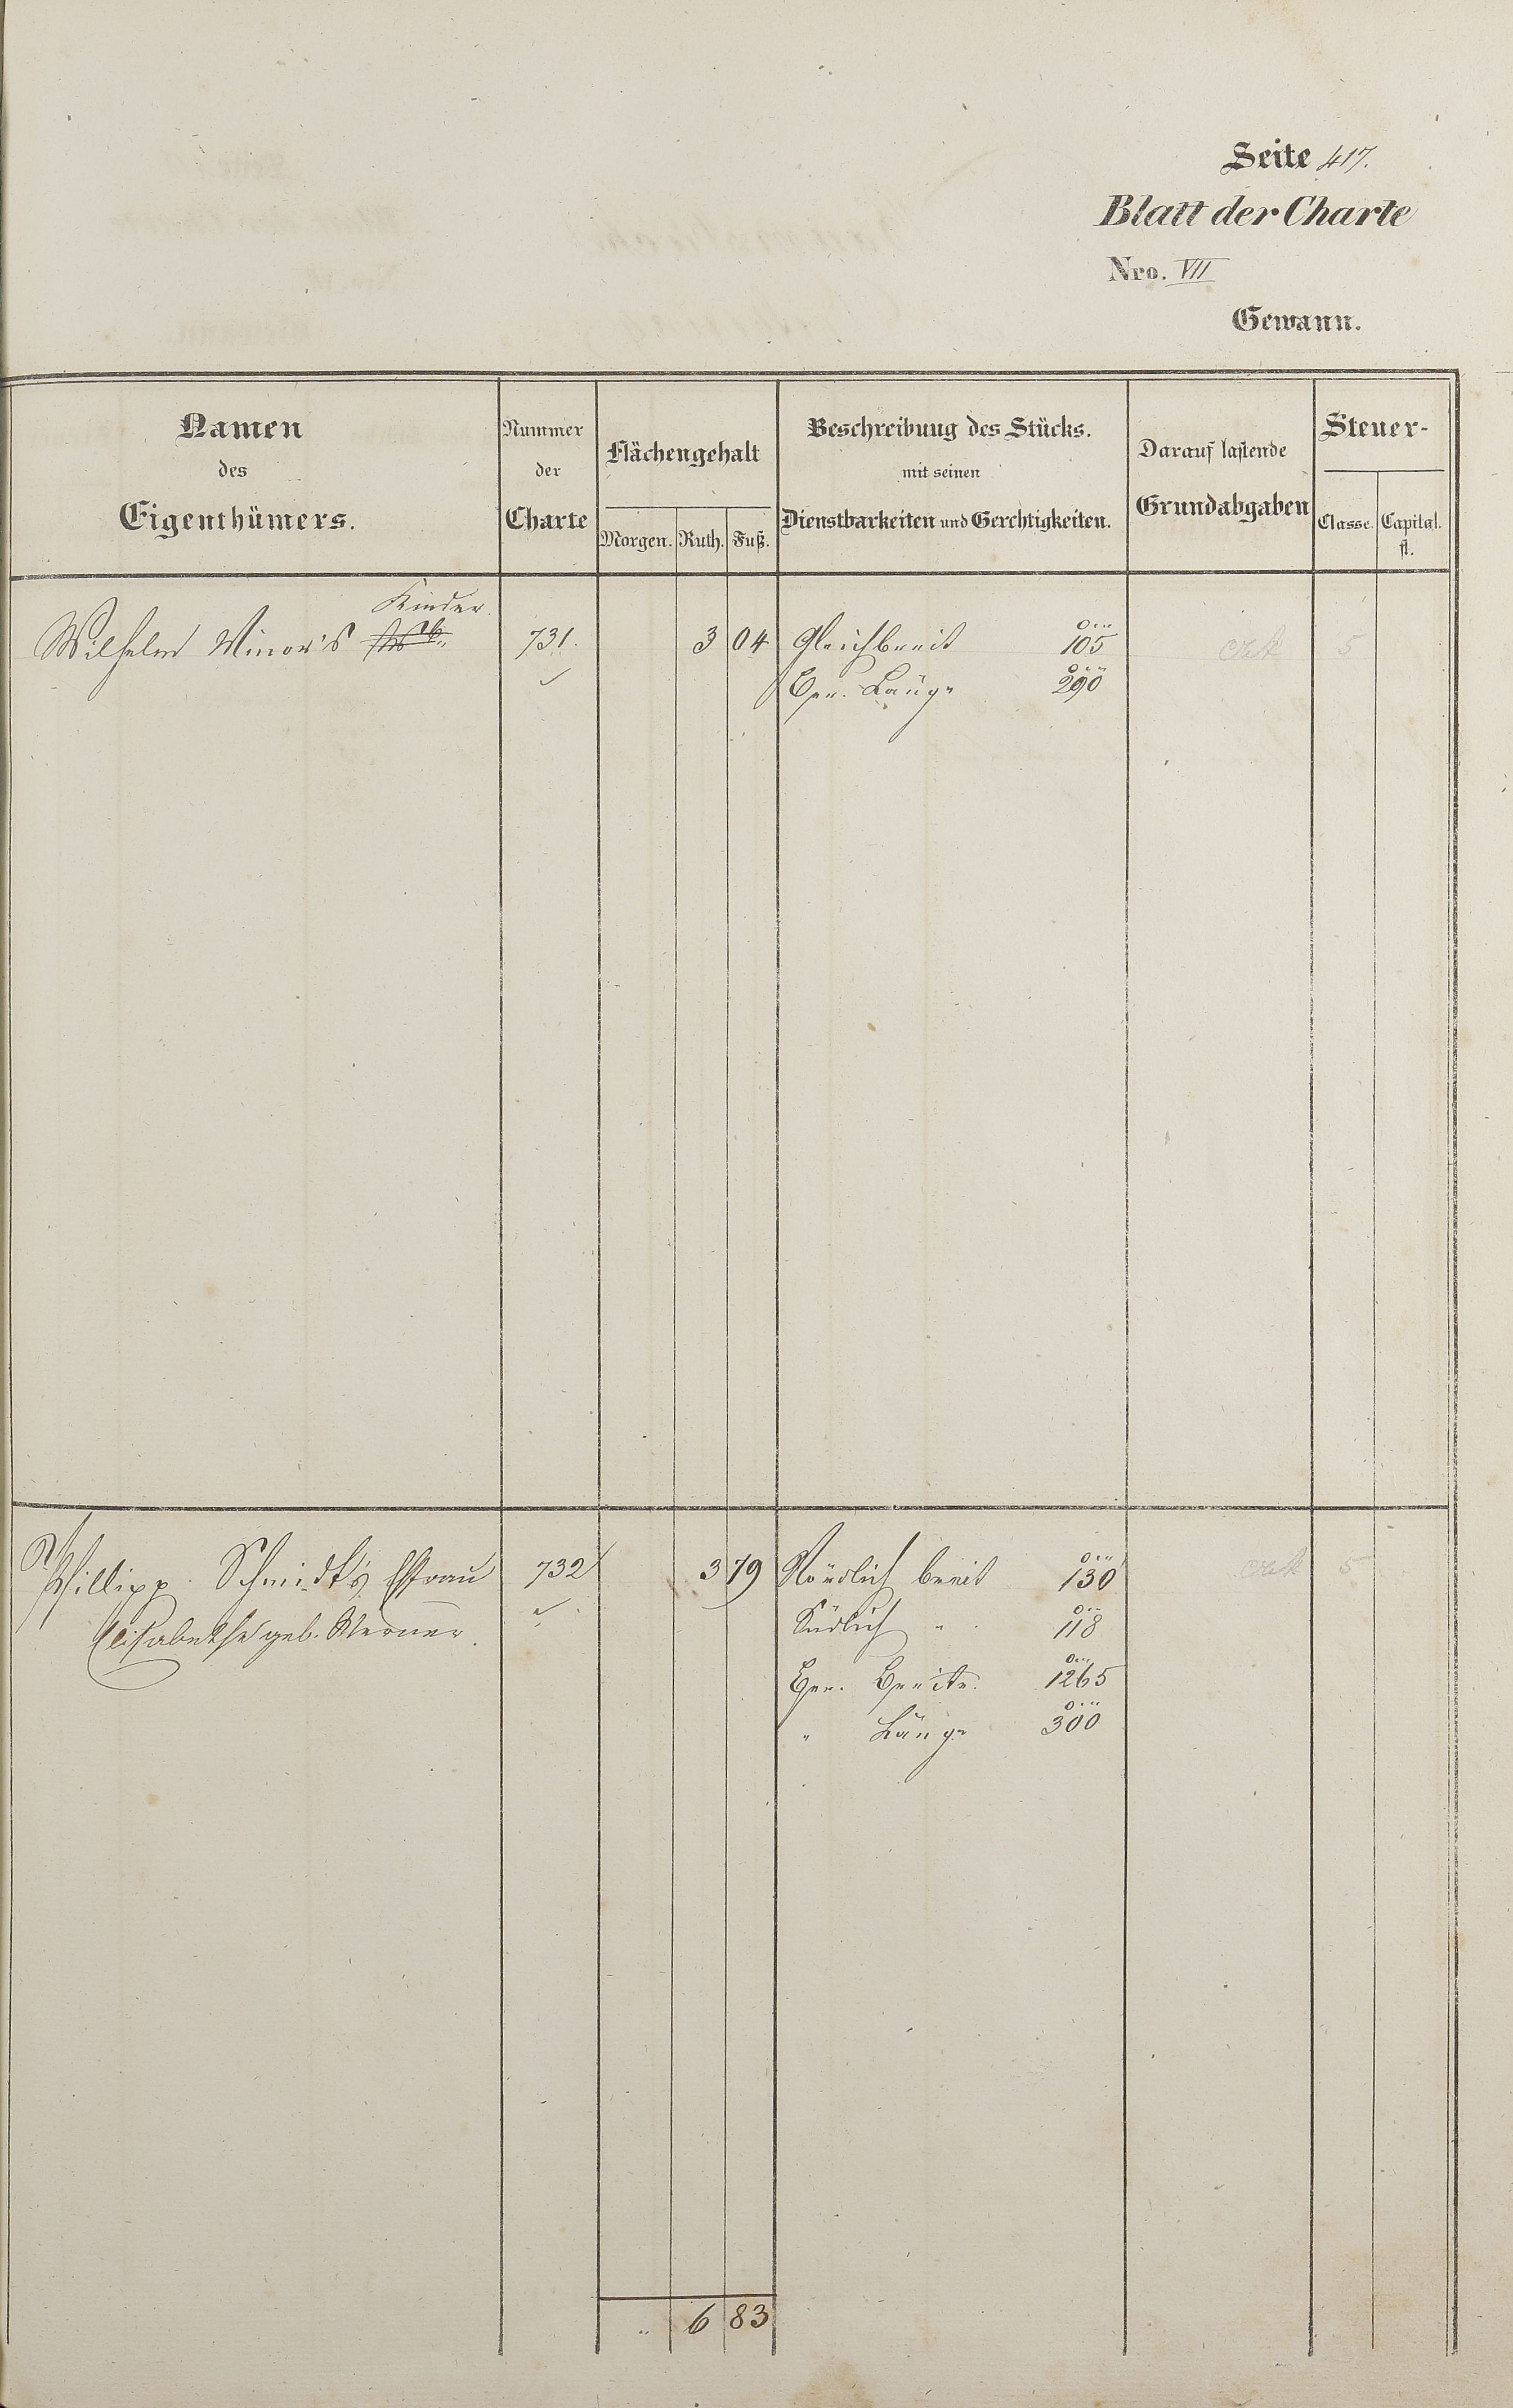 Seite 417.
Blatt der Charte
Nro. VII
Gewann.
Namen
des
Eigenthümers.
Nummer
der
Charte
Flächengehalt
Morgen. Ruth. Fuß.
Beschreibung des Stücks.
mit seinen
Dienstbarkeiten und Gerechtigkeiten.
Darauf lastende
Grundabgaben
Steuer-
Classe. Capital.
fl.
Kinder.
Wilhelm Minor's 731. 3 04 Gleichbreit 105 5
Ger. Länge 290
Phillipp Schmidt's Ehfrau 732 3 79 Nördlich breit 130 5
Elisabetha geb. Werner. Südlich " 118
Ger. Breite. 1265
" Länge 300
" 6 83